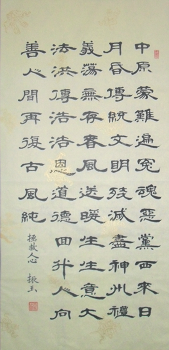 中原蒙難遍冤魂惡黨西來日
月昏傳統文明殆滅盡神州禮
義蕩無存春風送暖生生意大
法洪傳浩浩恩道德回升人向
善人間再復古風純
拯救人心